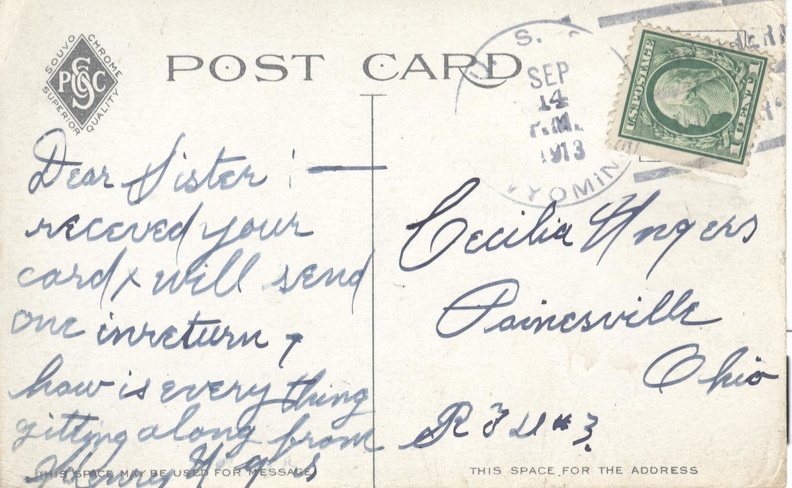 SOUVO CHROME
PCSC
SUPERIOR QUALITY
POST CARD
S.
SEP
14
P.M.
1913
WYOMING
U.S. POSTAGE
1 CENT 1
Dear Sister : —
receved your
card & will send
one in return &
how is every thing
gitting along from
Henry
THIS SPACE MAY BE USED FOR MESSAGE
Cecilia Ungers
Painesville
Ohio
R F D #3.
THIS SPACE FOR THE ADDRESS